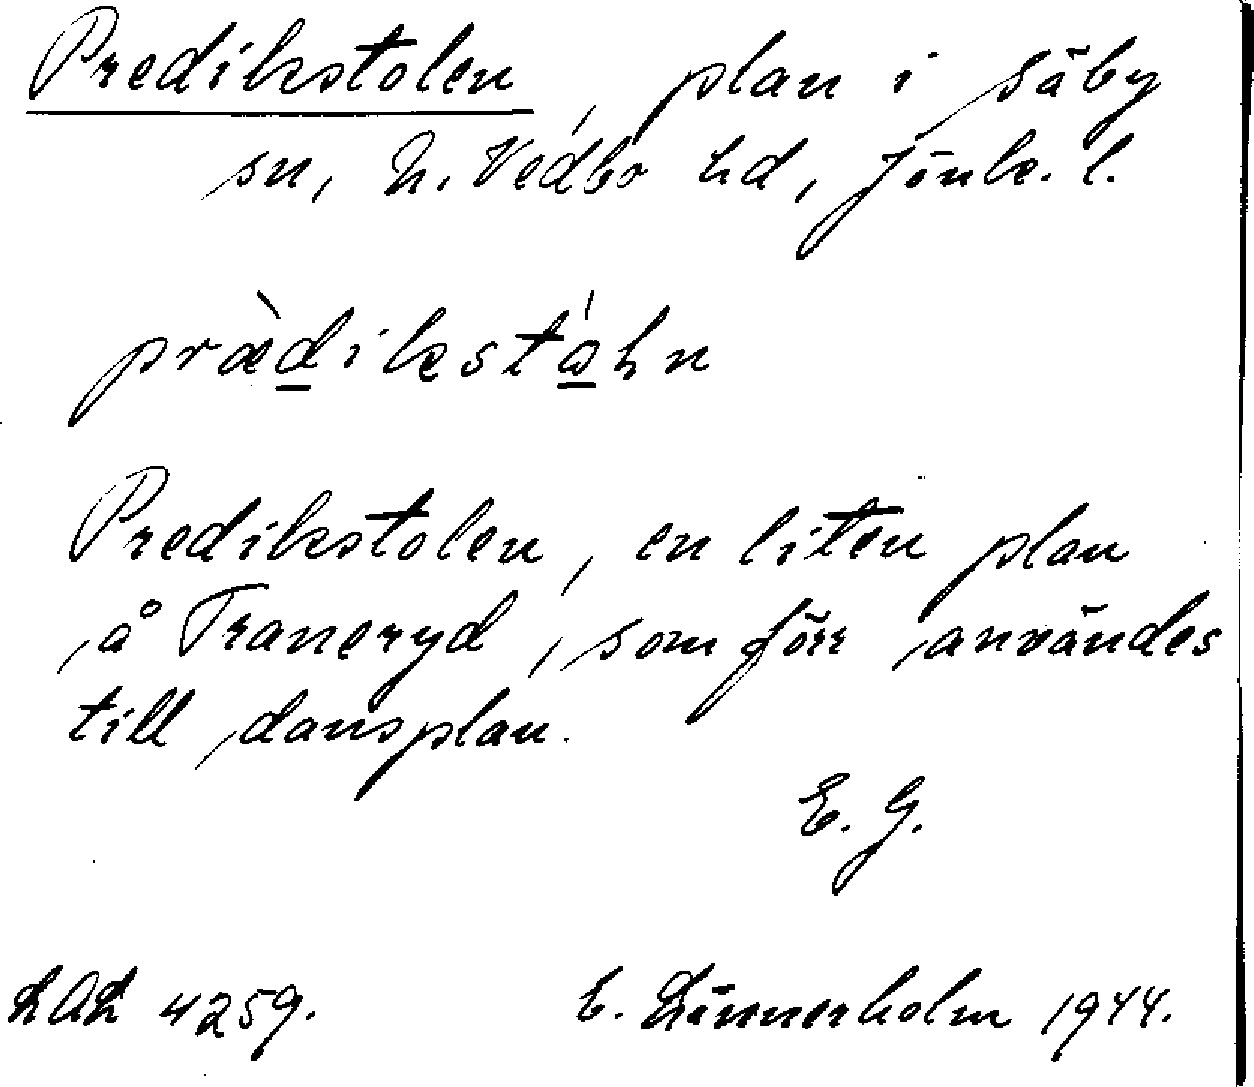 Predikstolen, plan i Säby
sn, N. Vedbo hd, Jönk. l.
prædikstɷ́ln
Predikstolen, en liten plan
å Traneryd, som förr användes
till dansplan.
E. G.
LAL 4259. E. Linnerholm 1944.